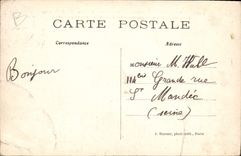 B
CARTE POSTALE
Correspondance
Adresse
Bonjour
monsieur M. Wall
114 Grande rue
St Mandée
(seine)